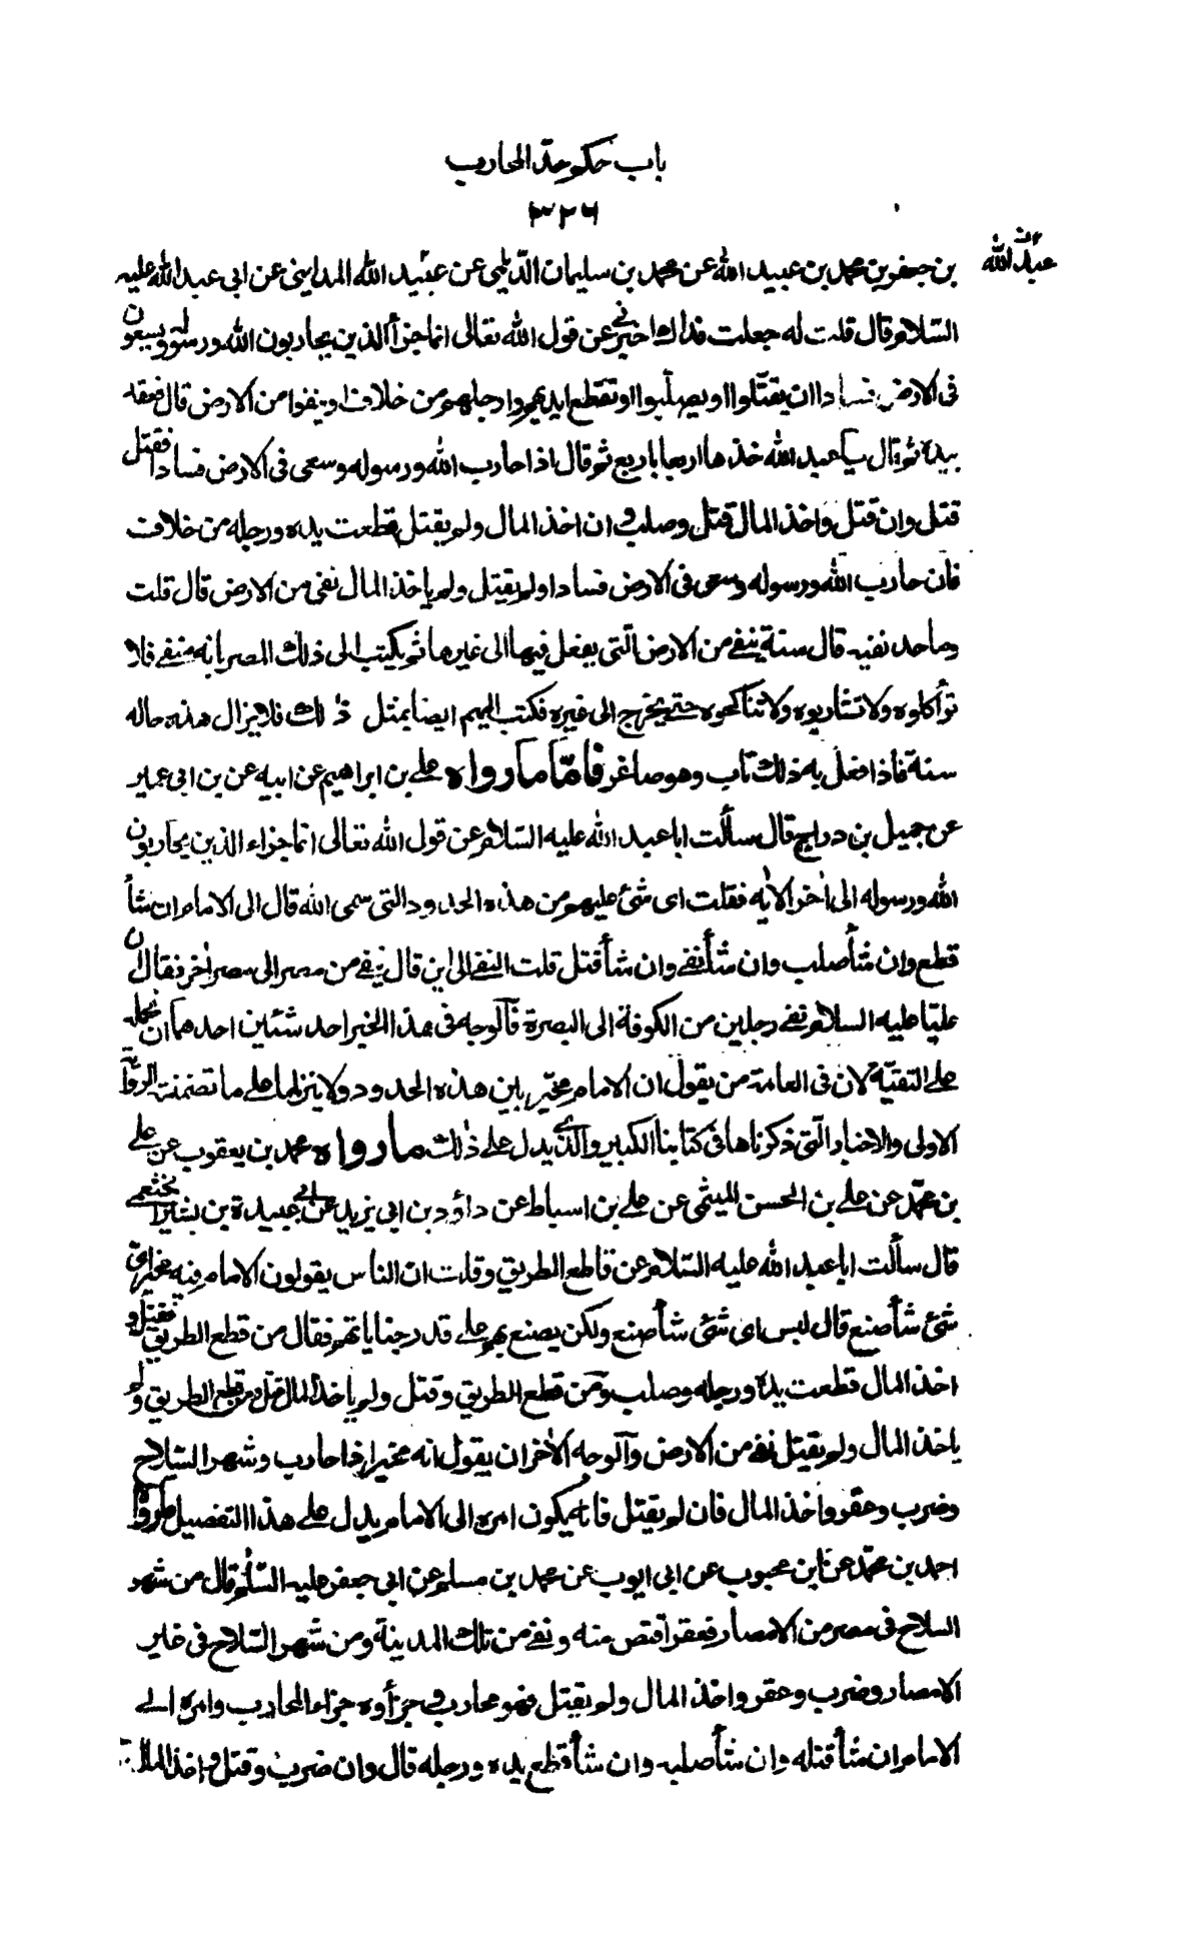 باب حكم حدّ المحارب
٣٢٦
عبد الله ن
بن جعفر بن محمد بن عبيد الله عن محمد بن سليمان الدّيلمي عن عبيد الله المدايني عن ابي عبد الله عليه
السّلام قال قلت له جعلت فداك اخبرني عن قول الله تعالى انما جزأ الذين يحاربون الله ورسوله ويسعون
فى الارض فسادا ان يقتّلوا او يصلّبوا او تقطّع ايديهم وارجلهم من خلاف او ينفوا من الارض قال فعقد
بيده ثم قال يا عبد الله خذها اربعا باربع ثم قال اذا حارب الله ورسوله وسعى فى الارض فسادا فقتل
قتل وان قتل واخذ المال قتل وصلب وان اخذ المال ولم يقتل قطعت يده ورجله من خلاف
فان حارب الله ورسوله وسعى فى الارض فسادا ولم يقتل ولم ياخذ المال نفى من الارض قال قلت
وما حد نفيه قال سنة ينفى من الارض الّتي يفعل فيها الى غيرها ثم يكتب الى ذلك المصر بانه منفى فلا
تؤاكلوه ولا تشاربوه ولا تناكحوه حتى يخرج الى غيره فكتب اليهم ايضا بمثل ذلك فلا يزال هذه حاله
سنة فاذا فعل به ذلك تاب وهو صاغر فامّا ما رواه علي بن ابراهيم عن ابيه عن بن ابي عمير
عن جميل بن دراج قال سألت ابا عبد الله عليه السّلام عن قول الله تعالى انما جزاء الذين يحاربون
الله ورسوله الى اخر الاية فقلت اى شئ عليهم من هذه الحدود التى سمى الله قال الى الامام ان شأ
قطع وان شأ صلب وان شأ نفى وان شأ قتل قلت النفى الى اين قال ينفى من مصر الى مصر اخر فقال ان
عليّا عليه السلام نفى رجلين من الكوفة الى البصرة فالوجه فى هذا الخبر احد شئين احدهما ان نحمله
على التقيّة لان فى العامة من يقول ان الامام مخيّر بين هذه الحدود ولا ينزلها على ما تضمنته الرواية
الاولى والاخبار الّتي ذكرناها فى كتابنا الكبير والذى يدل على ذلك ما رواه محمد بن يعقوب عن علي
بن محمّد عن علي بن الحسن الميثمي عن علي بن اسباط عن داؤد بن ابي يزيد عن ابي عبيدة بن بشير الخثعمي
قال سألت ابا عبد الله عليه السّلام عن قاطع الطريق وقلت ان الناس يقولون الامام فيه مخير اى
شئ شأ صنع قال ليس اى شئ شأ صنع ولكن يصنع بهم على قدر جناياتهم فقال من قطع الطريق فقتل و
اخذ المال قطعت يده ورجله وصلب ومن قطع الطريق وقتل ولم ياخذ المال قتل ومن قطع الطريق ولم
ياخذ المال ولم يقتل نفى من الارض والوجه الاخر ان يقول انه مخير اذا حارب وشهر السّلاح
وضرب وعقر واخذ المال فان لم يقتل فانه يكون امره الى الامام يدل على هذا التفصيل ما رواه
احمد بن محمّد عن ابن محبوب عن ابي ايوب عن محمد بن مسلم عن ابي جعفر عليه السّلام قال من شهر
السلاح فى مصر من الامصار فعقر اقتص منه ونفى من تلك المدينة ومن شهر السّلاح فى غير
الامصار وضرب وعقر واخذ المال ولم يقتل فهو محارب فجزأوه جزاء المحارب وامره الى
الامام ان شأ قتله وان شأ صلبه وان شأ قطع يده ورجله قال وان ضرب وقتل واخذ المال